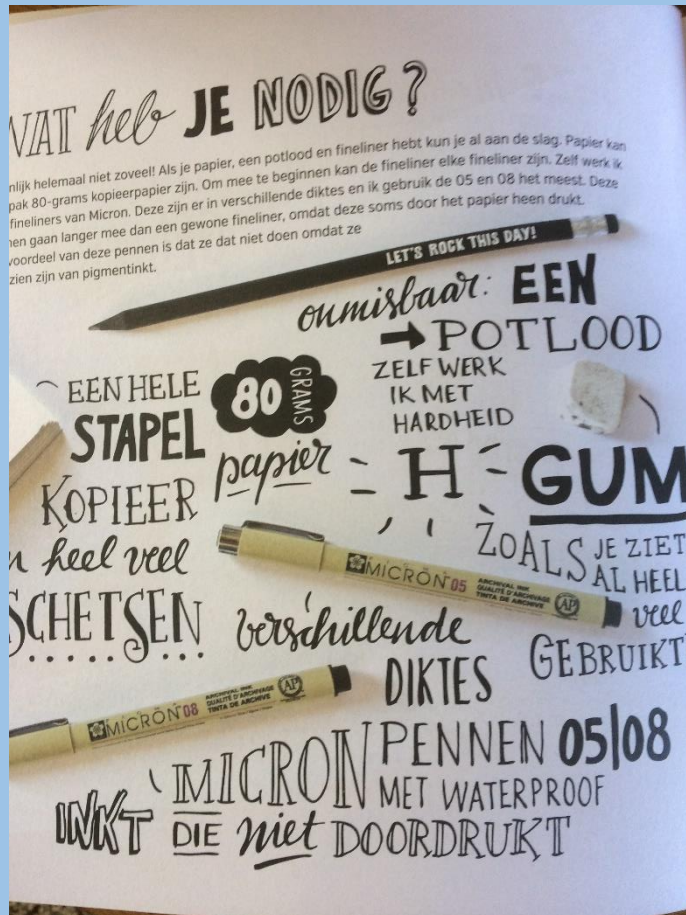 WAT heb JE NODIG?
nlijk helemaal niet zoveel! Als je papier, een potlood en fineliner hebt kun je al aan de slag. Papier kan
pak 80-grams kopieerpapier zijn. Om mee te beginnen kan de fineliner elke fineliner zijn. Zelf werk ik
fineliners van Micron. Deze zijn er in verschillende diktes en ik gebruik de 05 en 08 het meest. Deze
nen gaan langer mee dan een gewone fineliner, omdat deze soms door het papier heen drukt.
voordeel van deze pennen is dat ze dat niet doen omdat ze
zien zijn van pigmentinkt.
LET'S ROCK THIS DAY!
onmisbaar: EEN
POTLOOD
ZELF WERK
IK MET
HARDHEID
H
EEN HELE
STAPEL
80 GRAMS
papier
KOPIEER
n heel veel
SCHETSEN
GUM
ZOALS JE ZIET
AL HEEL
veel
GEBRUIKT
MICRON 05
ARCHIVAL INK
QUALITÉ D'ARCHIVAGE
TINTA DE ARCHIVE
AP
verschillende
DIKTES
MICRON 08
ARCHIVAL INK
QUALITÉ D'ARCHIVAGE
TINTA DE ARCHIVE
AP
MICRON PENNEN 05|08
MET WATERPROOF
INKT DIE niet DOORDRUKT